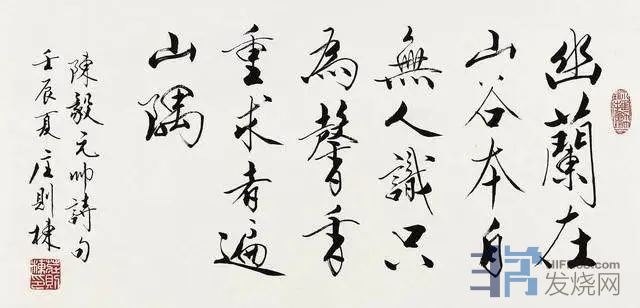 幽蘭在
山谷本自
無人識只
為馨香
重求者遍
山隅
陳毅元帥詩句
壬辰夏庄則棟
HIFI168.com
发烧网